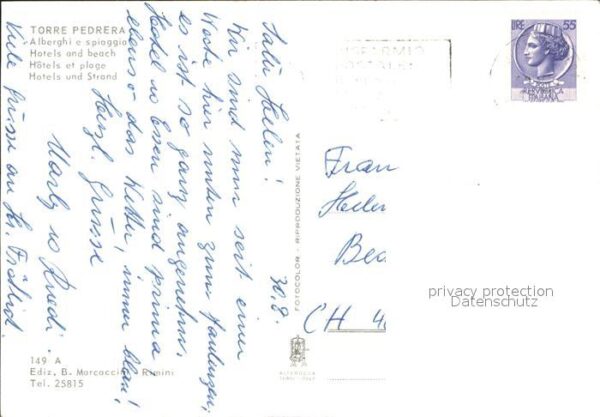 TORRE PEDRERA
Alberghi e spiaggia
Hotels and beach
Hôtels et plage
Hotels und Strand
30.8.
Salü Helen!
Wir sind nun seit einer
Woche hier unten zum faulenzen,
es ist so ganz angenehm.
Hotel u Essen sind prima,
ebenso das Wetter, immer blau!
Herzl. Grüsse
Marly u Ruedi.
Viele Grüsse an Hr.
149 A
Ediz. B. Marcaccini Rimini
Tel. 25815
FOTOCOLOR - RIPRODUZIONE VIETATA
RISPARMIO
POSTALE
LIRE 55
REPUBBLICA
ITALIANA
Frau
Helen
Bea
CH
privacy protection
Datenschutz